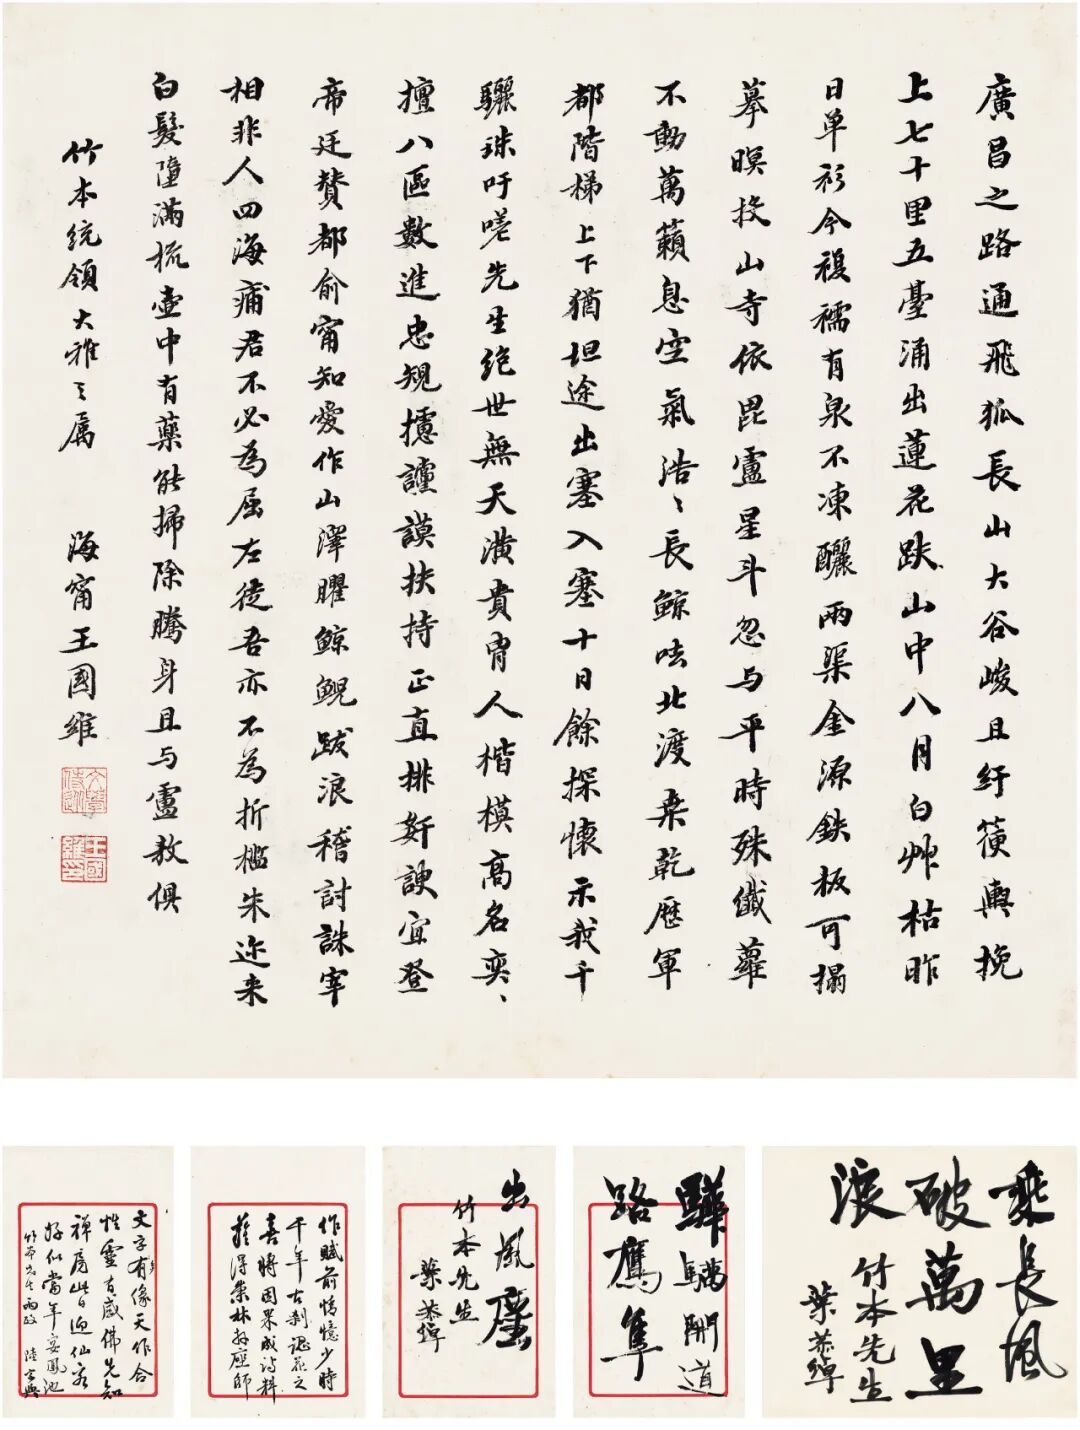 廣昌之路通飛狐長山大谷峻且紆篌輿挽
上七十里五臺涌出蓮花趺山中八月白艸枯昨
日單衫今複襦有泉不凍釃兩渠金源鉄板可搨
摹暝投山寺依毘盧星斗忽与平時殊纖蘿
不動萬籟息空氣浩〻長鲸呿北渡桑乾歷軍
都階梯上下猶坦途出塞入塞十日餘探懷示我千
驪珠吁嗟先生絶世無天潢貴胄人楷模高名奕〻
擅八區數進忠規攄讜謨扶持正直排奸諛宜登
帝廷贊都俞甯知愛作山澤臞鲸鲵跋浪稽討誅宰
相非人四海痡君不必為屈左徒吾亦不為折檻朱迩来
白髮墮滿梳壺中有藥能掃除騰身且与盧敖俱
竹本統領大雅〻屬
海甯王國維
王國維印
乘長風
破萬里
浪
竹本先生
葉恭綽
驊騮開道
路鷹隼
出風塵
竹本先生
葉恭綽
作賦前情憶少時
千年古刹認花之
喜將因果成詩料

文字有緣天作合
性靈有感佛先知
禅房此日迎仙客
好似當年宴鳳池
竹本先生两政
陸宗輿